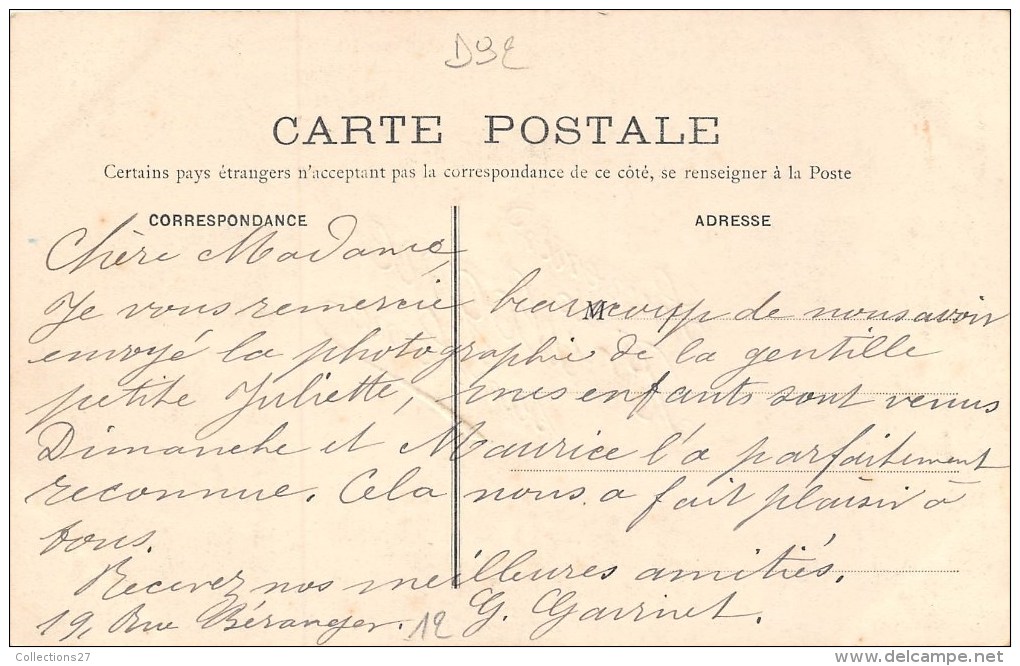 D92
CARTE POSTALE
Certains pays étrangers n'acceptant pas la correspondance de ce côté, se renseigner à la Poste
CORRESPONDANCE
ADRESSE
Chère Madame,
Je vous remercie beaucoup de nous avoir
M
envoyé la photographie de la gentille
petite Juliette, mes enfants sont venus
Dimanche et Maurice l'a parfaitement
reconnue. Cela nous a fait plaisir à
tous.
Recevez nos meilleures amitiés.
19, Rue Béranger. G. Garrinet.
12
Collections27
www.delcampe.net